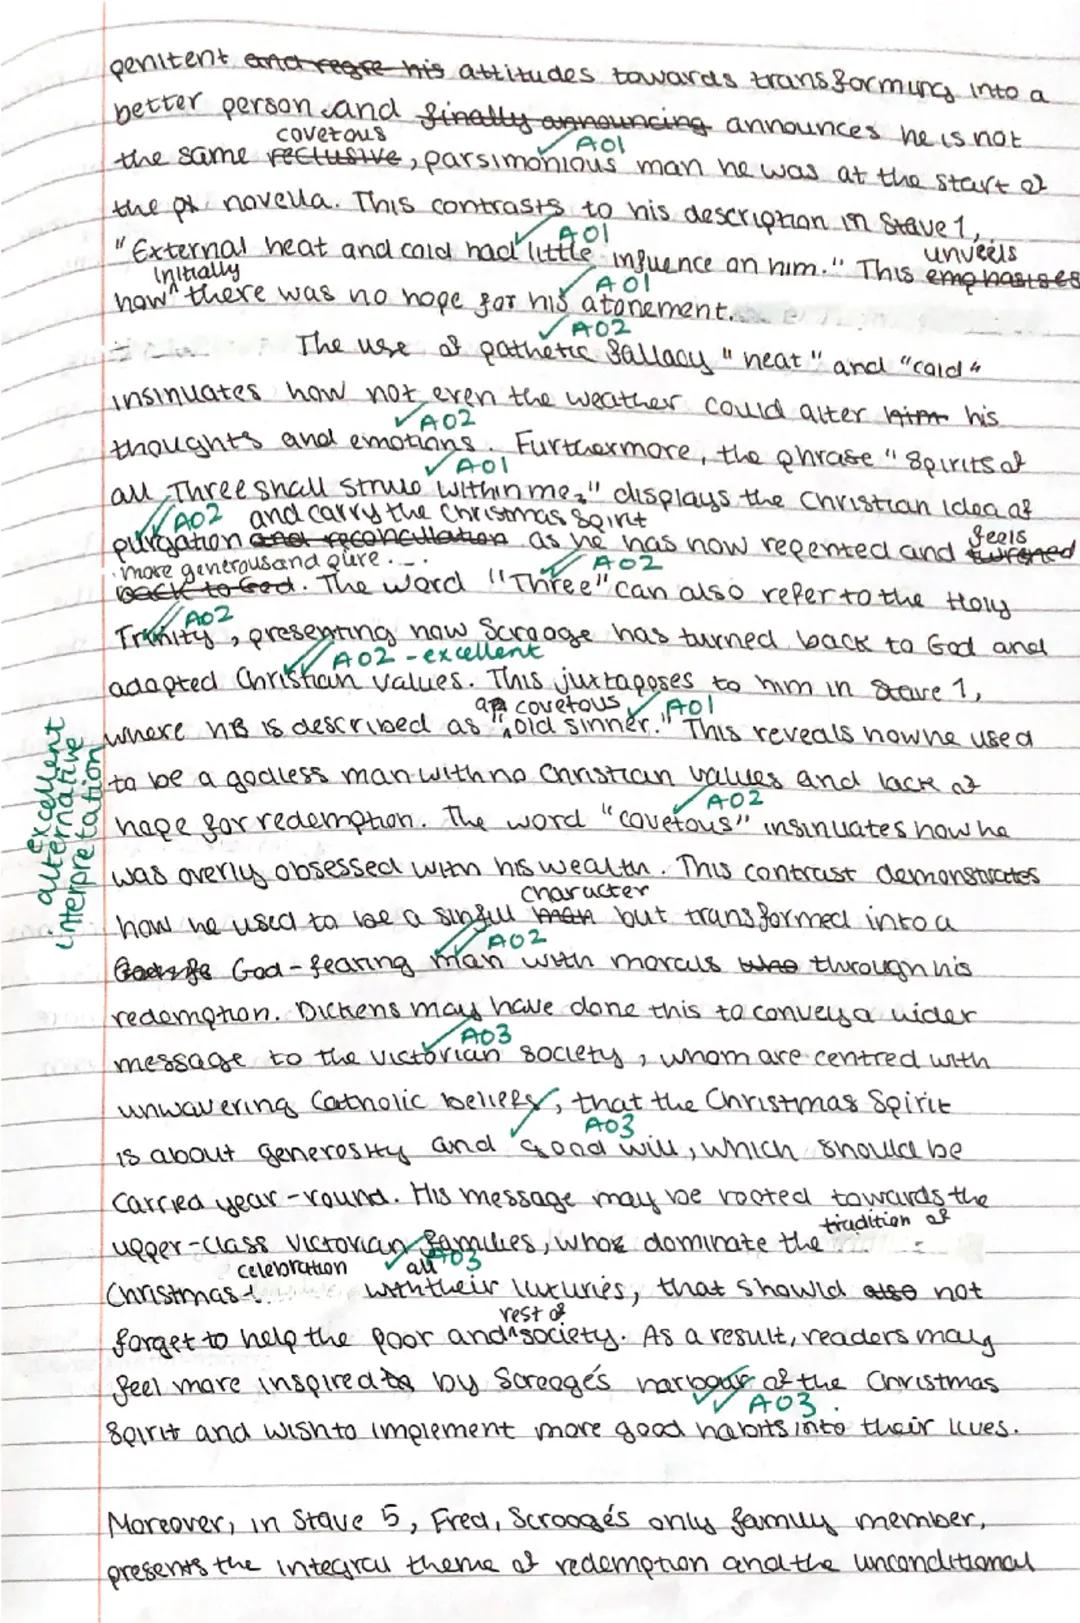 penitent and regre his attitudes towards transforming into a
better person and finally announcing announces he is not
covetous
AO1
the same reclusive, parsimonious man he was at the start of
the pl novella. This contrasts to his description in Stave 1,
AO1
"External heat and cold had little influence on him." This emphasises
unveils
initially
AO1
how there was no hope for his atonement.
AO2
The use of pathetic fallacy "heat" and "cold"
insinuates how not even the weather could alter him his
AO2
thoughts and emotions. Furthermore, the phrase "Spirits of
AO1
all Three shall strive within me," displays the Christian idea of
AO2
and carry the Christmas Spirit
feels
purgation and reconcillation as he has now repented and turened
more generous and pure
AO2
back to God. The word "Three" can also refer to the Holy
AO2
Trinity, presenting how Scrooge has turned back to God and
AO2 - excellent
adopted Christian values. This juxtaposes to him in Stave 1,
a covetous
AO1
where he is described as "old sinner." This reveals how he used
to be a godless man with no Christian values and lack of
AO2
hope for redemption. The word "covetous" insinuates how he
was overly obsessed with his wealth. This contrast demonstrates
character
how he used to be a sinful man but transformed into a
AO2
God-fearing man with morals who through his
redemption. Dickens may have done this to convey a wider
AO3
message to the Victorian society, whom are centred with
unwavering Catholic beliefs, that the Christmas Spirit
AO3
is about generosity and good will, which should be
carried year-round. His message may be rooted towards the
tradition of
upper-class Victorian families, who dominate the
celebration
all
AO3
Christmas with their luxuries, that should also not
rest of
forget to help the poor and society. As a result, readers may
feel more inspired by Scrooge's harbour of the Christmas
AO3
Spirit and wish to implement more good habits into their lives.
Moreover, in Stave 5, Fred, Scrooge's only family member,
presents the integral theme of redemption and the unconditional
excellent
alternative
interpretation